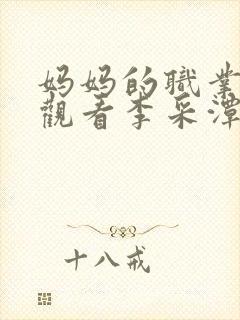 妈妈的職業
觀看李采潭
十八戒